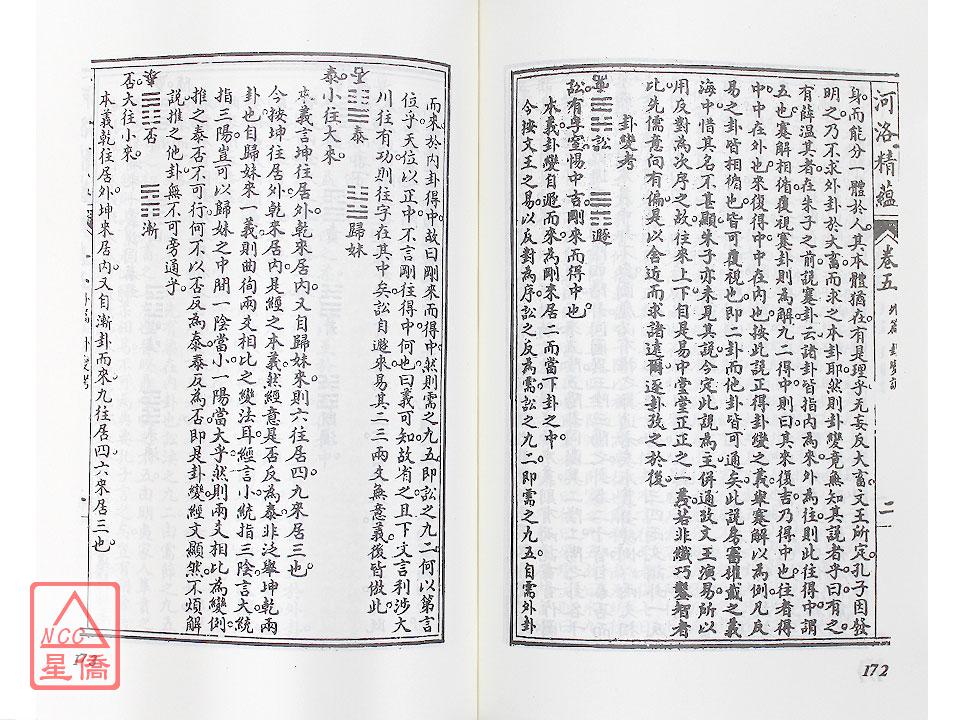 河洛精蘊
卷五
外篇
二
身而能分一體於人其本體猶在有是理乎无妄反大畜文王所定孔子因發
明之乃不求外卦於大畜而求之本卦耶然則卦變竟無知其說者乎曰有之
有薛温其者在朱子之前說蹇卦云諸卦皆指内為來外為往則此往得中謂
五也蹇解相循覆視蹇卦則為解九二得中則曰其來復吉乃得中也往者得
中中在外也來復得中中在内也按此說正得卦變之義舉蹇解以為例凡反
易之卦皆相循也皆可覆視也即二卦而他卦皆可通矣此說房審權載之義
海中惜其名不甚顯朱子亦未見其說今定此說為主併通攷文王演易所以
用反對為次序之故往來上下自是易中堂堂正正之一義若非纖巧鑿智者
比先儒意向有偏是以舍近而求諸遠爾逐卦攷之於後
卦變考
訟 遯
訟有孚窒惕中吉剛來而得中也
本義卦變自遯而來為剛來居二而當下卦之中
今按文王之易以反對為序訟之反為需訟之九二即需之九五自需外卦
172
而來於内卦得中故曰剛來而得中然則需之九五即訟之九二何以第言
位乎天位以正中不言剛往得中何也曰義可知故省之且下文言利涉大
川往有功則往字在其中矣訟自遯來易其二三兩爻無意義後皆倣此
泰 歸妹
泰小往大來
本義言坤往居外乾來居内又自歸妹來則六往居四九來居三也
今按坤往居外乾來居内是經之本義然經意是否反為泰非泛舉坤乾兩
卦也自歸妹來一義則曲徇兩爻相比之變法耳經言小統指三陰言大統
指三陽豈可以歸妹之中間一陰當小一陽當大乎然則兩爻相比為變例
推之泰否不可行何不以否反為泰泰反為否即是卦變經文顯然不煩解
說推之他卦無不可旁通乎
否 漸
否大往小來
本義乾往居外坤來居内又自漸卦而來九往居四六來居三也
173
NCC
星僑